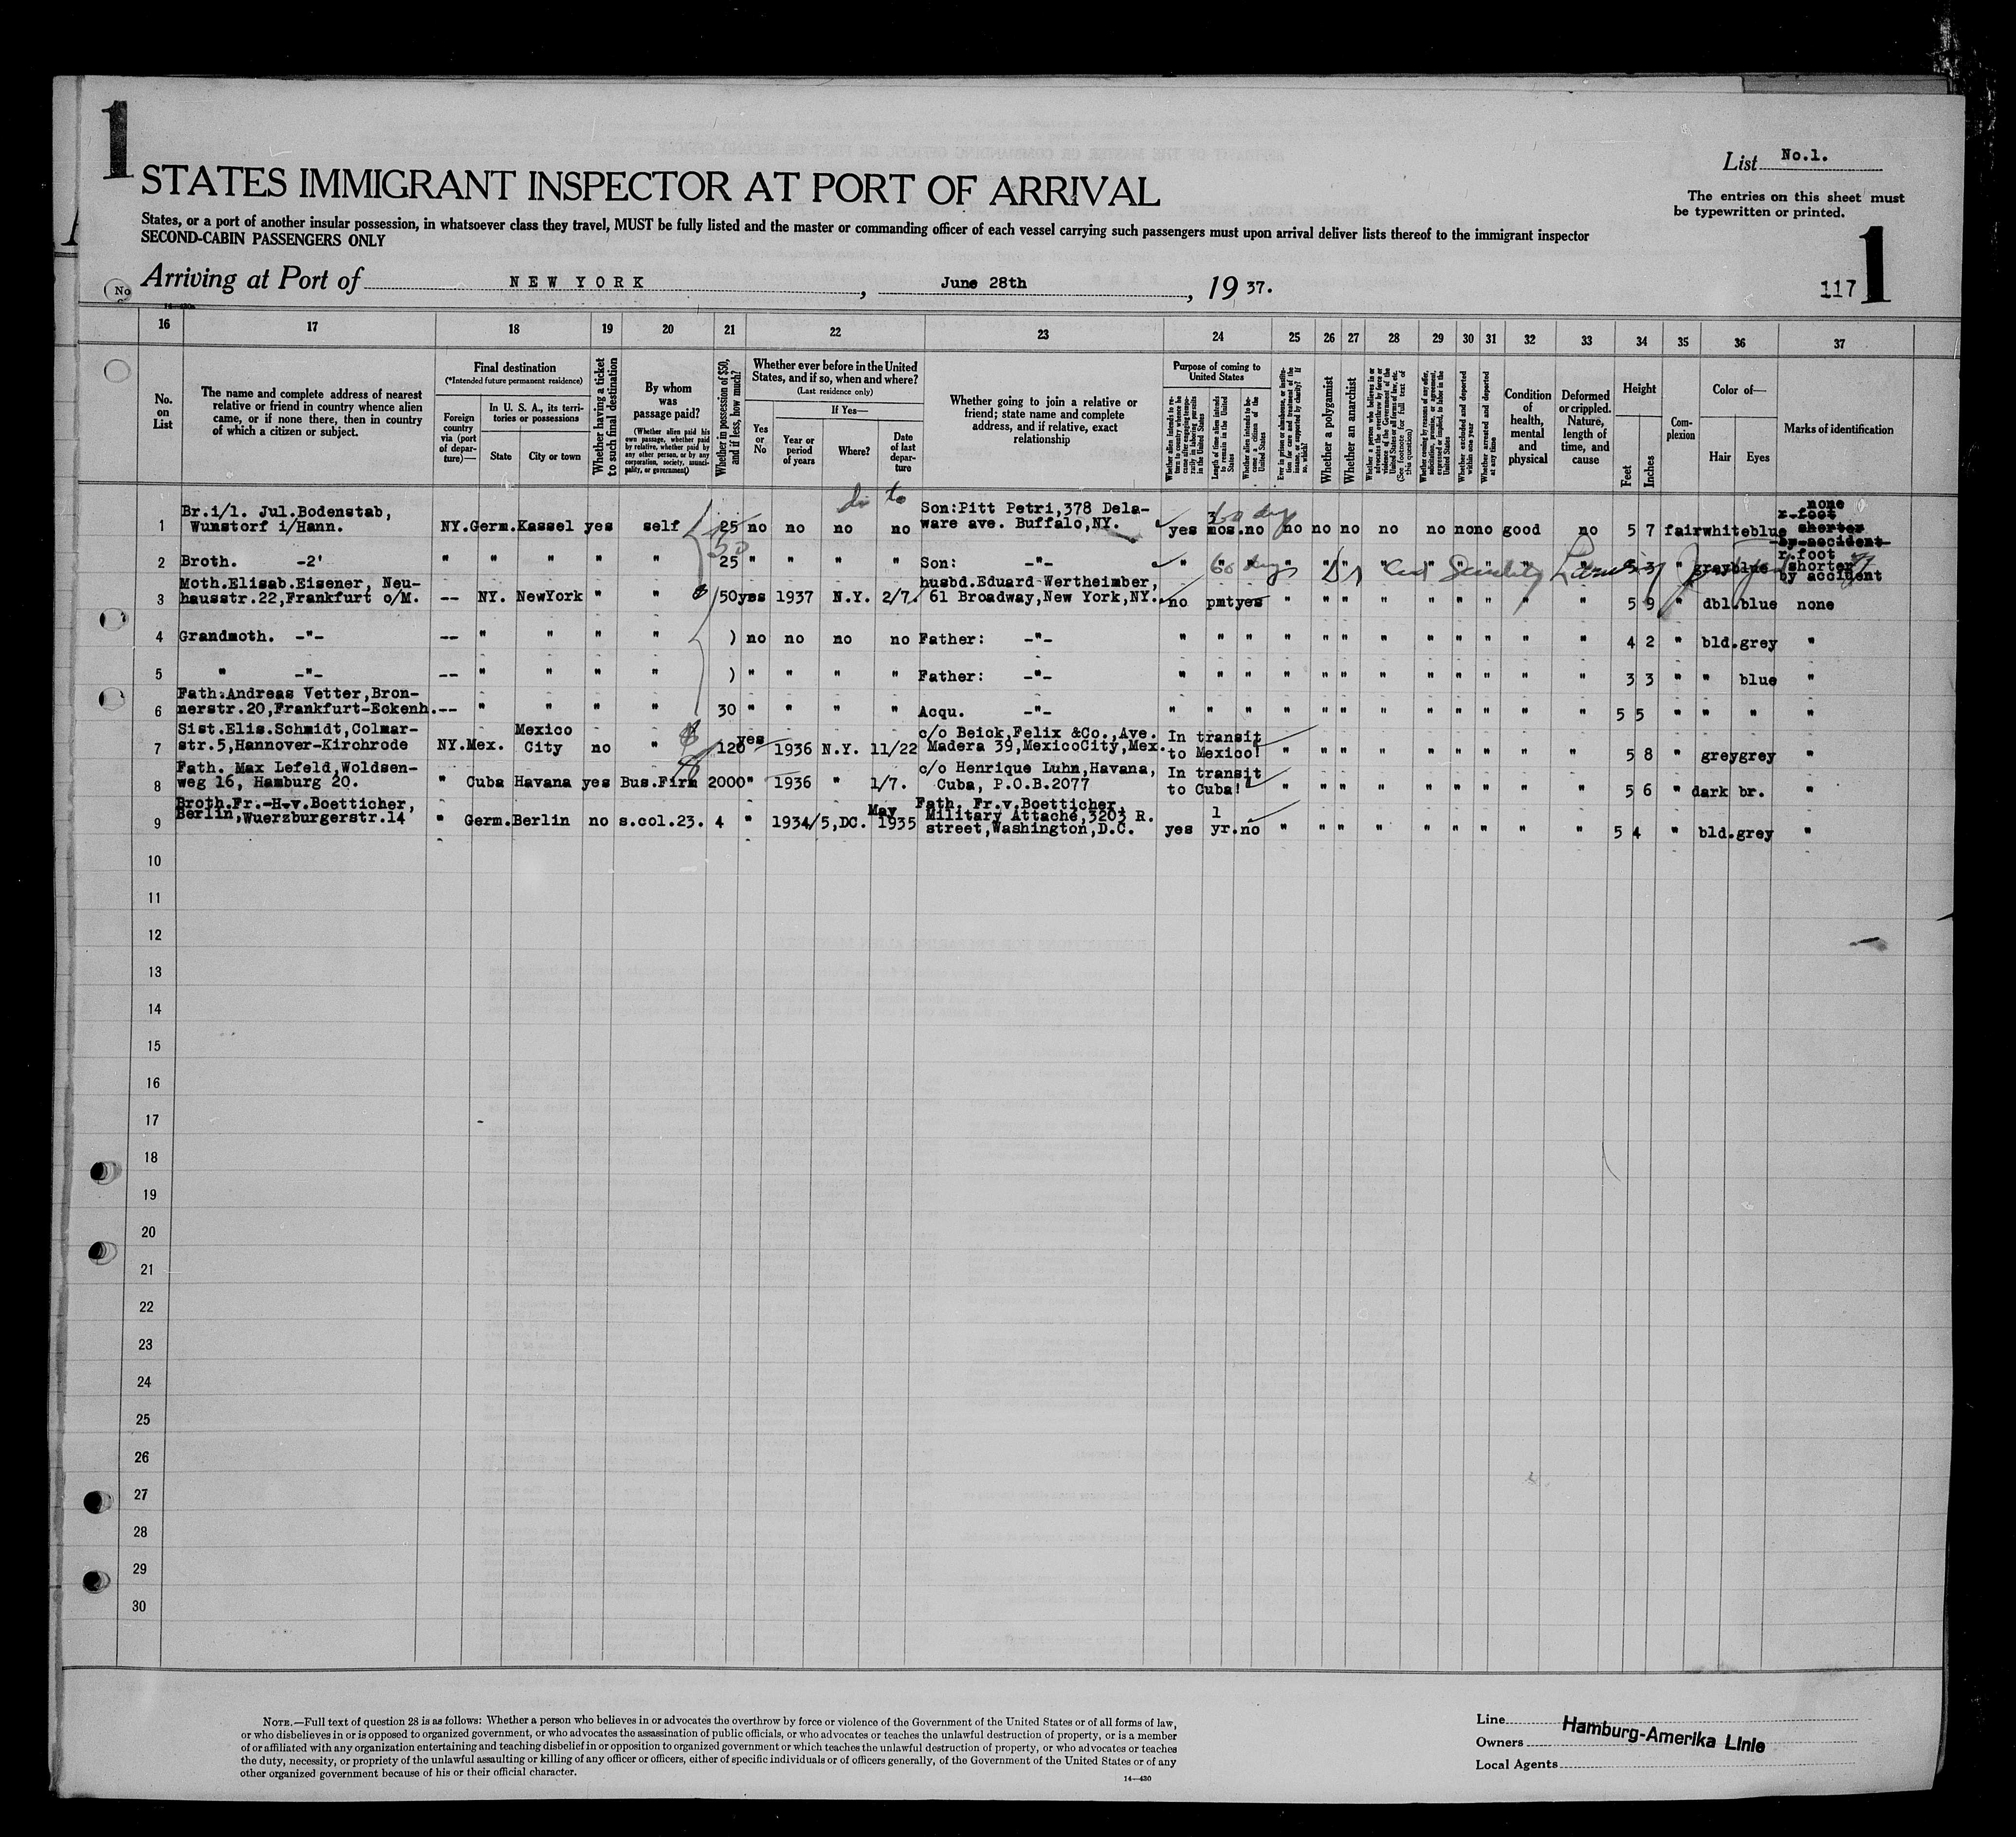 1
STATES IMMIGRANT INSPECTOR AT PORT OF ARRIVAL
List No.1.
The entries on this sheet must
be typewritten or printed.
States, or a port of another insular possession, in whatsoever class they travel, MUST be fully listed and the master or commanding officer of each vessel carrying such passengers must upon arrival deliver lists thereof to the immigrant inspector
SECOND-CABIN PASSENGERS ONLY
Arriving at Port of NEW YORK, June 28th, 19 37.
117 1
16 17 18 19 20 21 22 23 24 25 26 27 28 29 30 31 32 33 34 35 36 37
No. on List
The name and complete address of nearest
relative or friend in country whence alien
came, or if none there, then in country
of which a citizen or subject.
Final destination
(*Intended future permanent residence)
Foreign country via (port of departure)—
In U. S. A., its territories or possessions
State
City or town
Whether having a ticket to such final destination
By whom was passage paid?
(Whether alien paid his own passage, whether paid by relative, whether paid by any other person, or by any corporation, society, municipality, or government)
Whether in possession of $50, and if less, how much?
Whether ever before in the United States, and if so, when and where?
(Last residence only)
Yes or No
If Yes—
Year or period of years
Where?
Date of last departure
Whether going to join a relative or
friend; state name and complete
address, and if relative, exact
relationship
Purpose of coming to United States
Length of time alien intends to remain in the United States
Whether alien intends to become a citizen of the United States
Whether a polygamist
Whether an anarchist
Whether excluded and deported within one year
Whether arrested and deported at any time
Condition of health, mental and physical
Deformed or crippled. Nature, length of time, and cause
Height
Feet
Inches
Complexion
Color of—
Hair
Eyes
Marks of identification
1 Br.i/l. Jul.Bodenstab,
Wunstorf i/Hann. NY.Germ.Kassel yes self 25 no no no no Son:Pitt Petri,378 Dela-
ware ave. Buffalo,NY. yes 3 mos. no no no no no no no no good no 5 7 fair white blue none
r.foot
shorter
by accident
60 days
2 Broth. -2' " " " " " 25 " " " " Son: -"- " " " 60 days 5 3 " grey blue r.foot
shorter
by accident
3 Moth.Elisab.Eisener, Neu-
hausstr.22,Frankfurt o/M. -- NY. NewYork " " 50 yes 1937 N.Y. 2/7. husbd.Eduard Wertheimber,
61 Broadway,New York,NY. no pmt yes " " " " " " " " " 5 9 " dbl. blue none
4 Grandmoth. -"- -- " " " " ) no no no no Father: -"- " " " " " " " " " " " " 4 2 " bld. grey "
5 " -"- -- " " " " ) " " " " Father: -"- " " " " " " " " " " " " 3 3 " " blue "
6 Fath.Andreas Vetter,Bron-
nerstr.20,Frankfurt-Eckenh. -- " " " " 30 " " " " Acqu. -"- " " " " " " " " " " " " 5 5 " " " "
7 Sist.Elis.Schmidt,Colmar-
str.5,Hannover-Kirchrode NY.Mex. Mexico
City no " 120 yes 1936 N.Y. 11/22 c/o Beick,Felix &Co.,Ave.
Madera 39,MexicoCity,Mex. In transit
to Mexico! " " " " " " " " " 5 8 " grey grey "
8 Fath. Max Lefeld,Woldsen-
weg 16, Hamburg 20. " Cuba Havana yes Bus.Firm 2000 " 1936 " 1/7. c/o Henrique Luhn,Havana,
Cuba, P.O.B.2077 In transit
to Cuba! " " " " " " " " " 5 6 " dark br. "
9 Broth.Fr.-H.v.Boetticher,
Berlin,Wuerzburgerstr.14 " Germ.Berlin no s.col.23. 4 " 1934/5,DC. May
1935 Fath. Fr.v.Boetticher,
Military Attaché,3203 R.
street,Washington,D.C. yes 1
yr. no " " " " " " " " " 5 4 " bld. grey "
10
11
12
13
14
15
16
17
18
19
20
21
22
23
24
25
26
27
28
29
30
NOTE.—Full text of question 28 is as follows: Whether a person who believes in or advocates the overthrow by force or violence of the Government of the United States or of all forms of law,
or who disbelieves in or is opposed to organized government, or who advocates the assassination of public officials, or who advocates or teaches the unlawful destruction of property, or is a member
of or affiliated with any organization entertaining and teaching disbelief in or opposition to organized government or which teaches the unlawful destruction of property, or who advocates or teaches
the duty, necessity, or propriety of the unlawful assaulting or killing of any officer or officers, either of specific individuals or of officers generally, of the Government of the United States or of any
other organized government because of his or their official character.
14—430
Line
Owners Hamburg-Amerika Linie
Local Agents